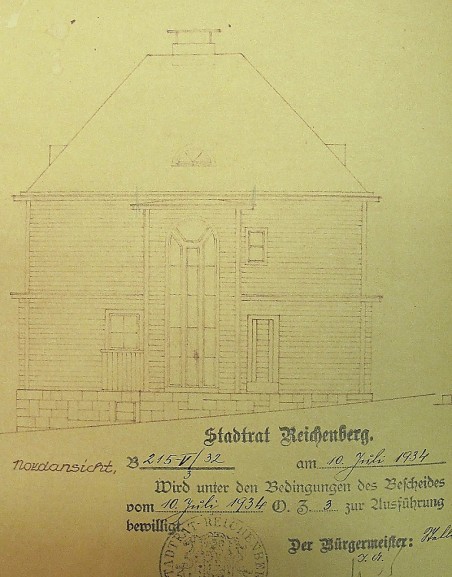 Stadtrat Reichenberg.
Nordansicht, B 215-V/32 am 10. Juli 1934
3
Wird unter den Bedingungen des Bescheides
vom 10. Juli 1934 O. Z. 3 zur Ausführung
bewilligt.
Der Bürgermeister:
STADTRAT-REICHENBERG